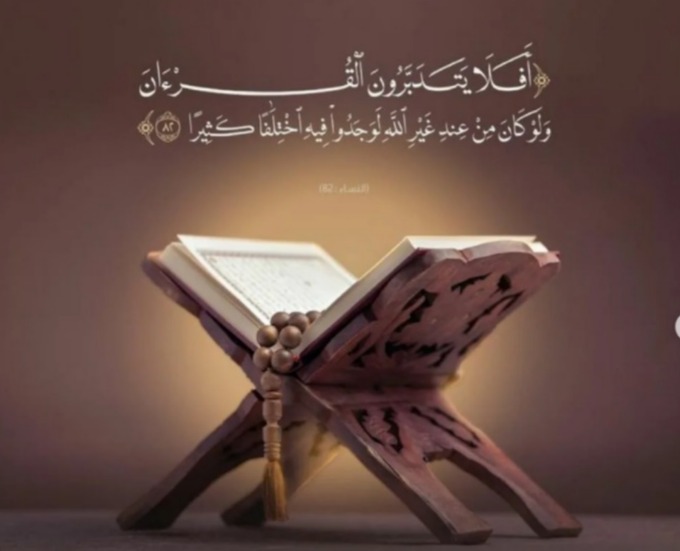 ﴿أَفَلَا يَتَدَبَّرُونَ ٱلْقُرْءَانَ
وَلَوْ كَانَ مِنْ عِندِ غَيْرِ ٱللَّهِ لَوَجَدُوا۟ فِيهِ ٱخْتِلَٰفًا كَثِيرًا ٨٢﴾
(النساء : 82)